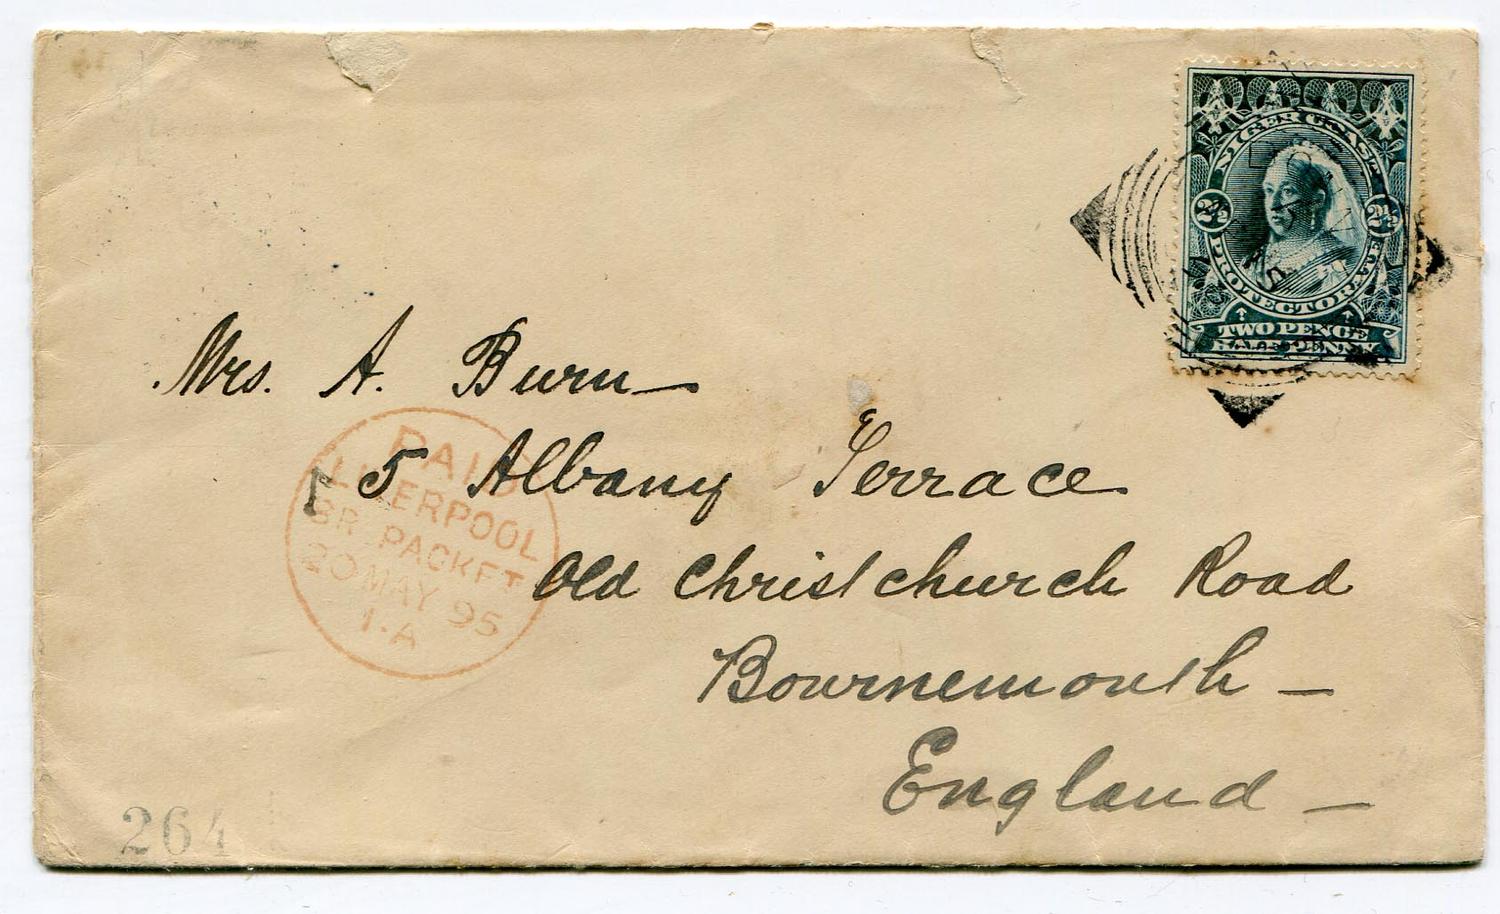 NIGER COAST
PROTECTORATE
2½ 2½
TWO PENCE
HALFPENNY
Mrs. A. Burn
5 Albany Terrace
Old Christchurch Road
Bournemouth
England
PAID
LIVERPOOL
BR. PACKET
20 MAY 95
1·A
264